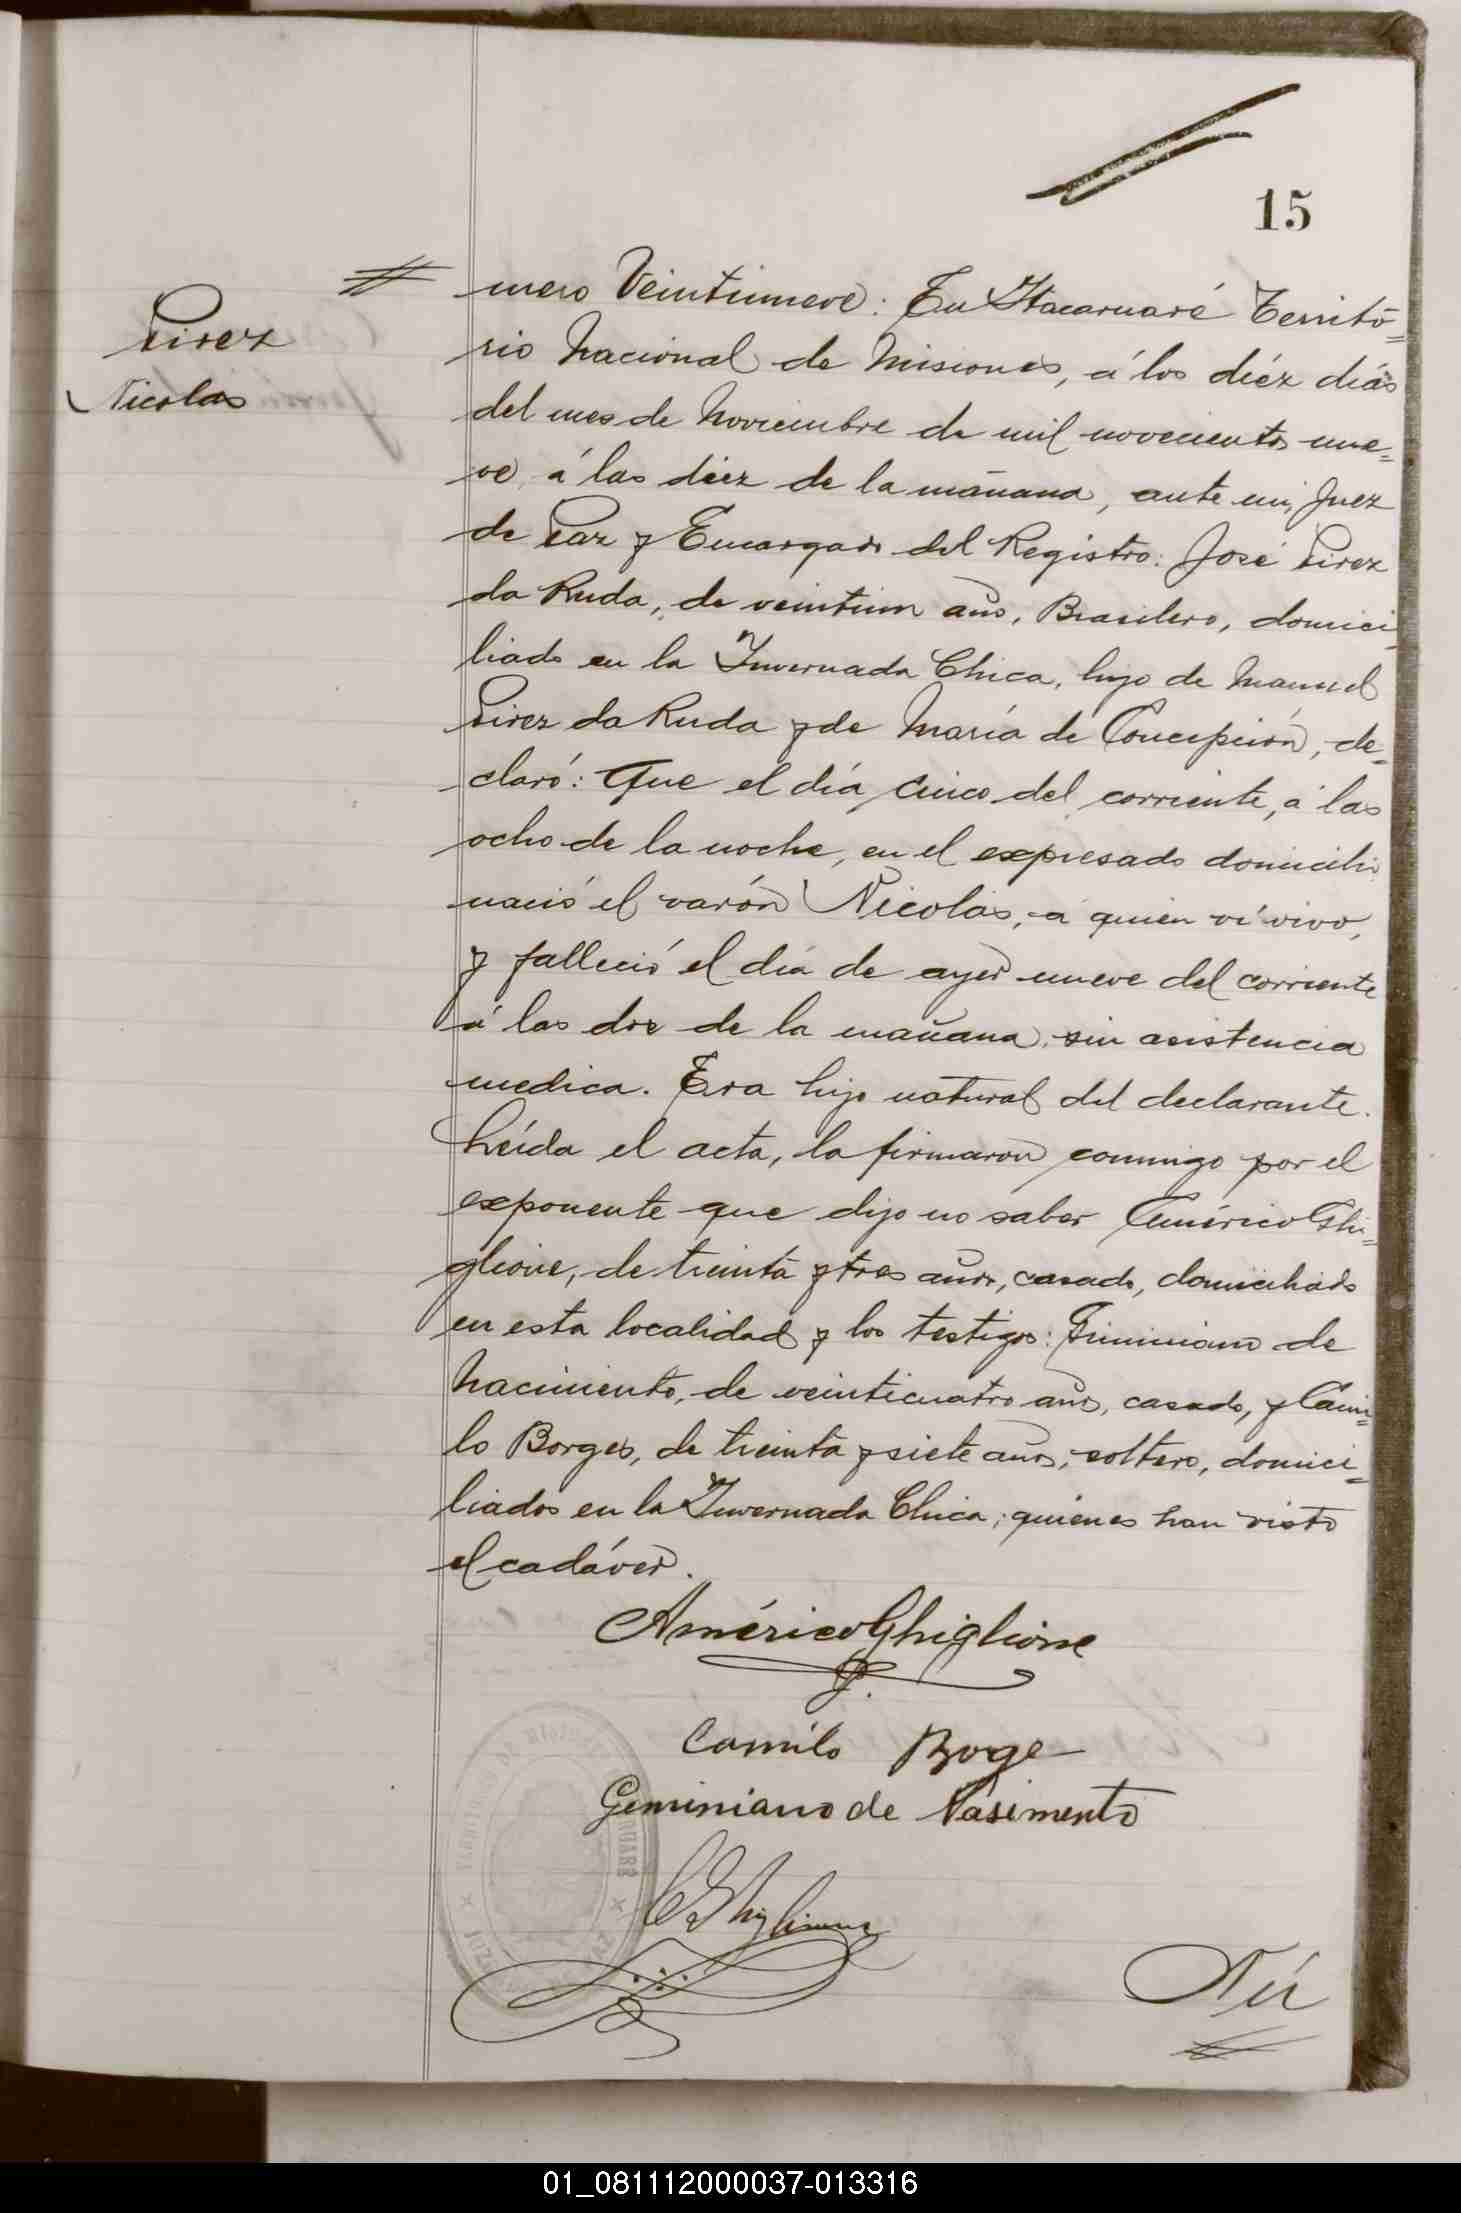 15
Pirez
Nicolas
mero Veintinueve: En Itacaruaré Territó=
rio Nacional de Misiones, á los diéz días
del mes de Noviembre de mil novecientos nue=
ve, á las diez de la mañana, ante mi, Juez
de Paz y Encargado del Registro: José Pirez
da Ruda, de veintiun años, Brasilero, domici=
liado en la Invernada Chica, hijo de Manuel
Pirez da Ruda y de María de Concepción, de=
claró: Que el día cinco del corriente, á las
ocho de la noche, en el expresado domicilio
nació el varón Nicolás, á quien ví vivo,
y falleció el día de ayer nueve del corriente
á las dos de la mañana, sin asistencia
medica. Era hijo natural del declarante.
Leída el acta, la firmaron conmigo por el
exponente que dijo no saber Américo Ghi=
glione, de treinta y tres años, casado, domiciliado
en esta localidad y los testigos: Giminiano de
Nacimiento, de veinticuatro años, casado, y Cami=
lo Borges, de treinta y siete años, soltero, domici=
liados en la Invernada Chica; quienes han visto
el cadáver.
Américo Ghiglione
Camilo Boge
Geminiano de Nasimento
Ghiglione
Nú
01_081112000037-013316